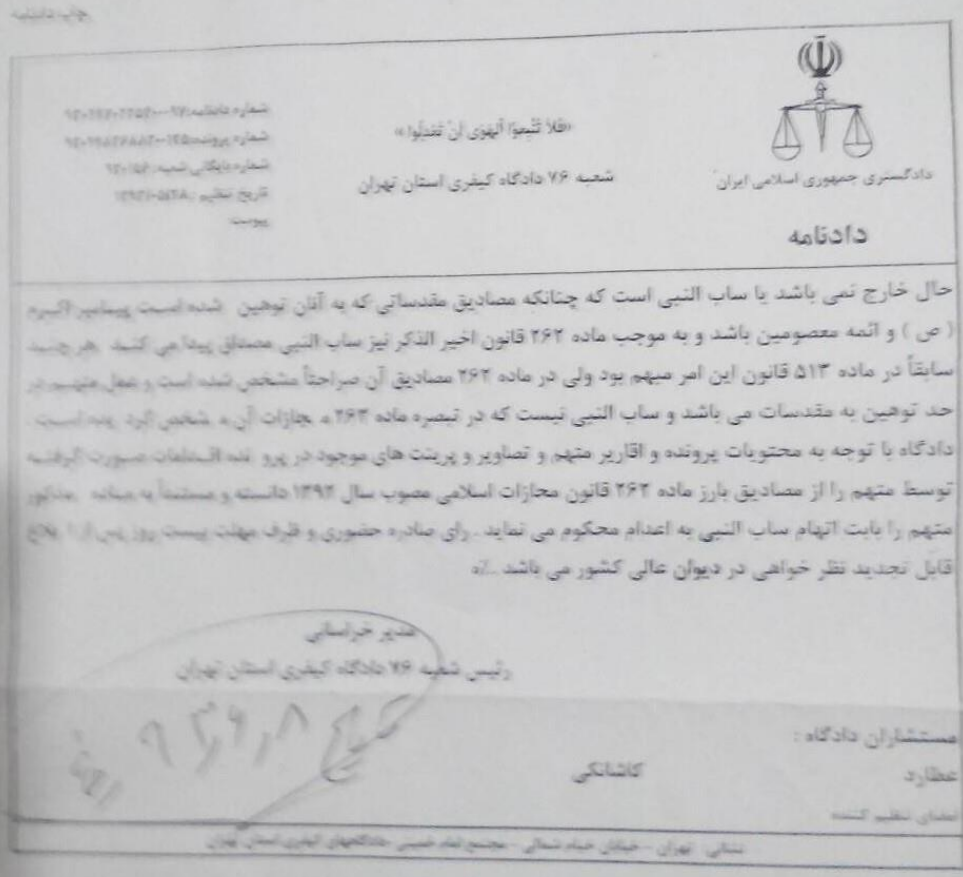 چاپ دادنامه
دادگستری جمهوری اسلامی ایران
دادنامه
«فلا تتبعوا الهوی ان تعدلوا»
شعبه ۷۶ دادگاه کیفری استان تهران
شماره دادنامه:
شماره پرونده:
شماره بایگانی شعبه:
تاریخ تنظیم:
پیوست:
حال خارج نمی باشد یا ساب النبی است که چنانکه مصادیق مقدساتی که به آنان توهین شده است پیامبر اکرم
( ص ) و ائمه معصومین باشد و به موجب ماده ۲۶۲ قانون اخیر الذکر نیز ساب النبی مصداق پیدا می کند هر چند
سابقاً در ماده ۵۱۳ قانون این امر مبهم بود ولی در ماده ۲۶۲ مصادیق آن صراحتاً مشخص شده است و عمل متهم در
حد توهین به مقدسات می باشد و ساب النبی نیست که در تبصره ماده ۲۶۳ مجازات آن مشخص گردیده است .
دادگاه با توجه به محتویات پرونده و اقاریر متهم و تصاویر و پرینت های موجود در پرونده اقدامات صورت گرفته
توسط متهم را از مصادیق بارز ماده ۲۶۲ قانون مجازات اسلامی مصوب سال ۱۳۹۲ دانسته و مستنداً به ماده مذکور
متهم را بابت اتهام ساب النبی به اعدام محکوم می نماید . رای صادره حضوری و ظرف مهلت بیست روز پس از ابلاغ
قابل تجدید نظر خواهی در دیوان عالی کشور می باشد ./ه
مدیر خراسانی
رئیس شعبه ۷۶ دادگاه کیفری استان تهران
مستشاران دادگاه :
عطارد کاشانکی
امضای تنظیم کننده
نشانی: تهران - خیابان خیام شمالی - مجتمع امام خمینی - دادگاههای کیفری استان تهران